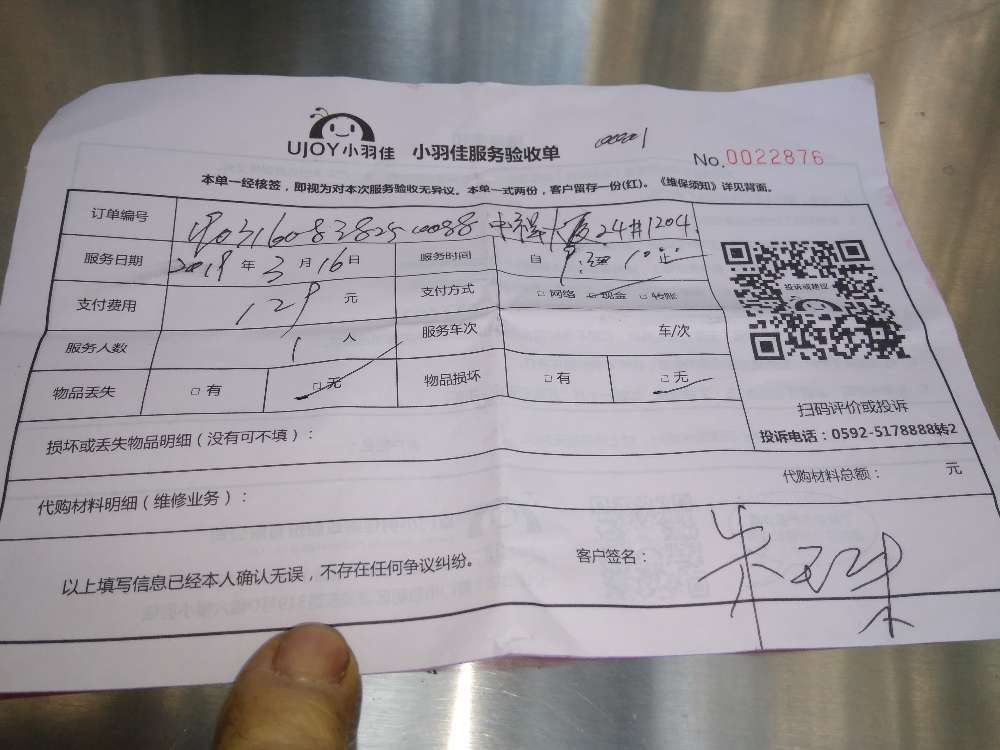 UJOY小羽佳 小羽佳服务验收单
No.0022876
本单一经核签，即视为对本次服务验收无异议。本单一式两份，客户留存一份(红)。《维保须知》详见背面。
订单编号 24#1204
服务日期 2019年3月16日 服务时间 自 9 至 10 止
支付费用 129 元 支付方式 □网络 □现金 □转账
投诉或建议
服务人数 1 人 服务车次 车/次
物品丢失 □有 □无 物品损坏 □有 □无
扫码评价或投诉
损坏或丢失物品明细（没有可不填）：
投诉电话：0592-5178888转2
代购材料明细（维修业务）： 代购材料总额： 元
以上填写信息已经本人确认无误，不存在任何争议纠纷。 客户签名：